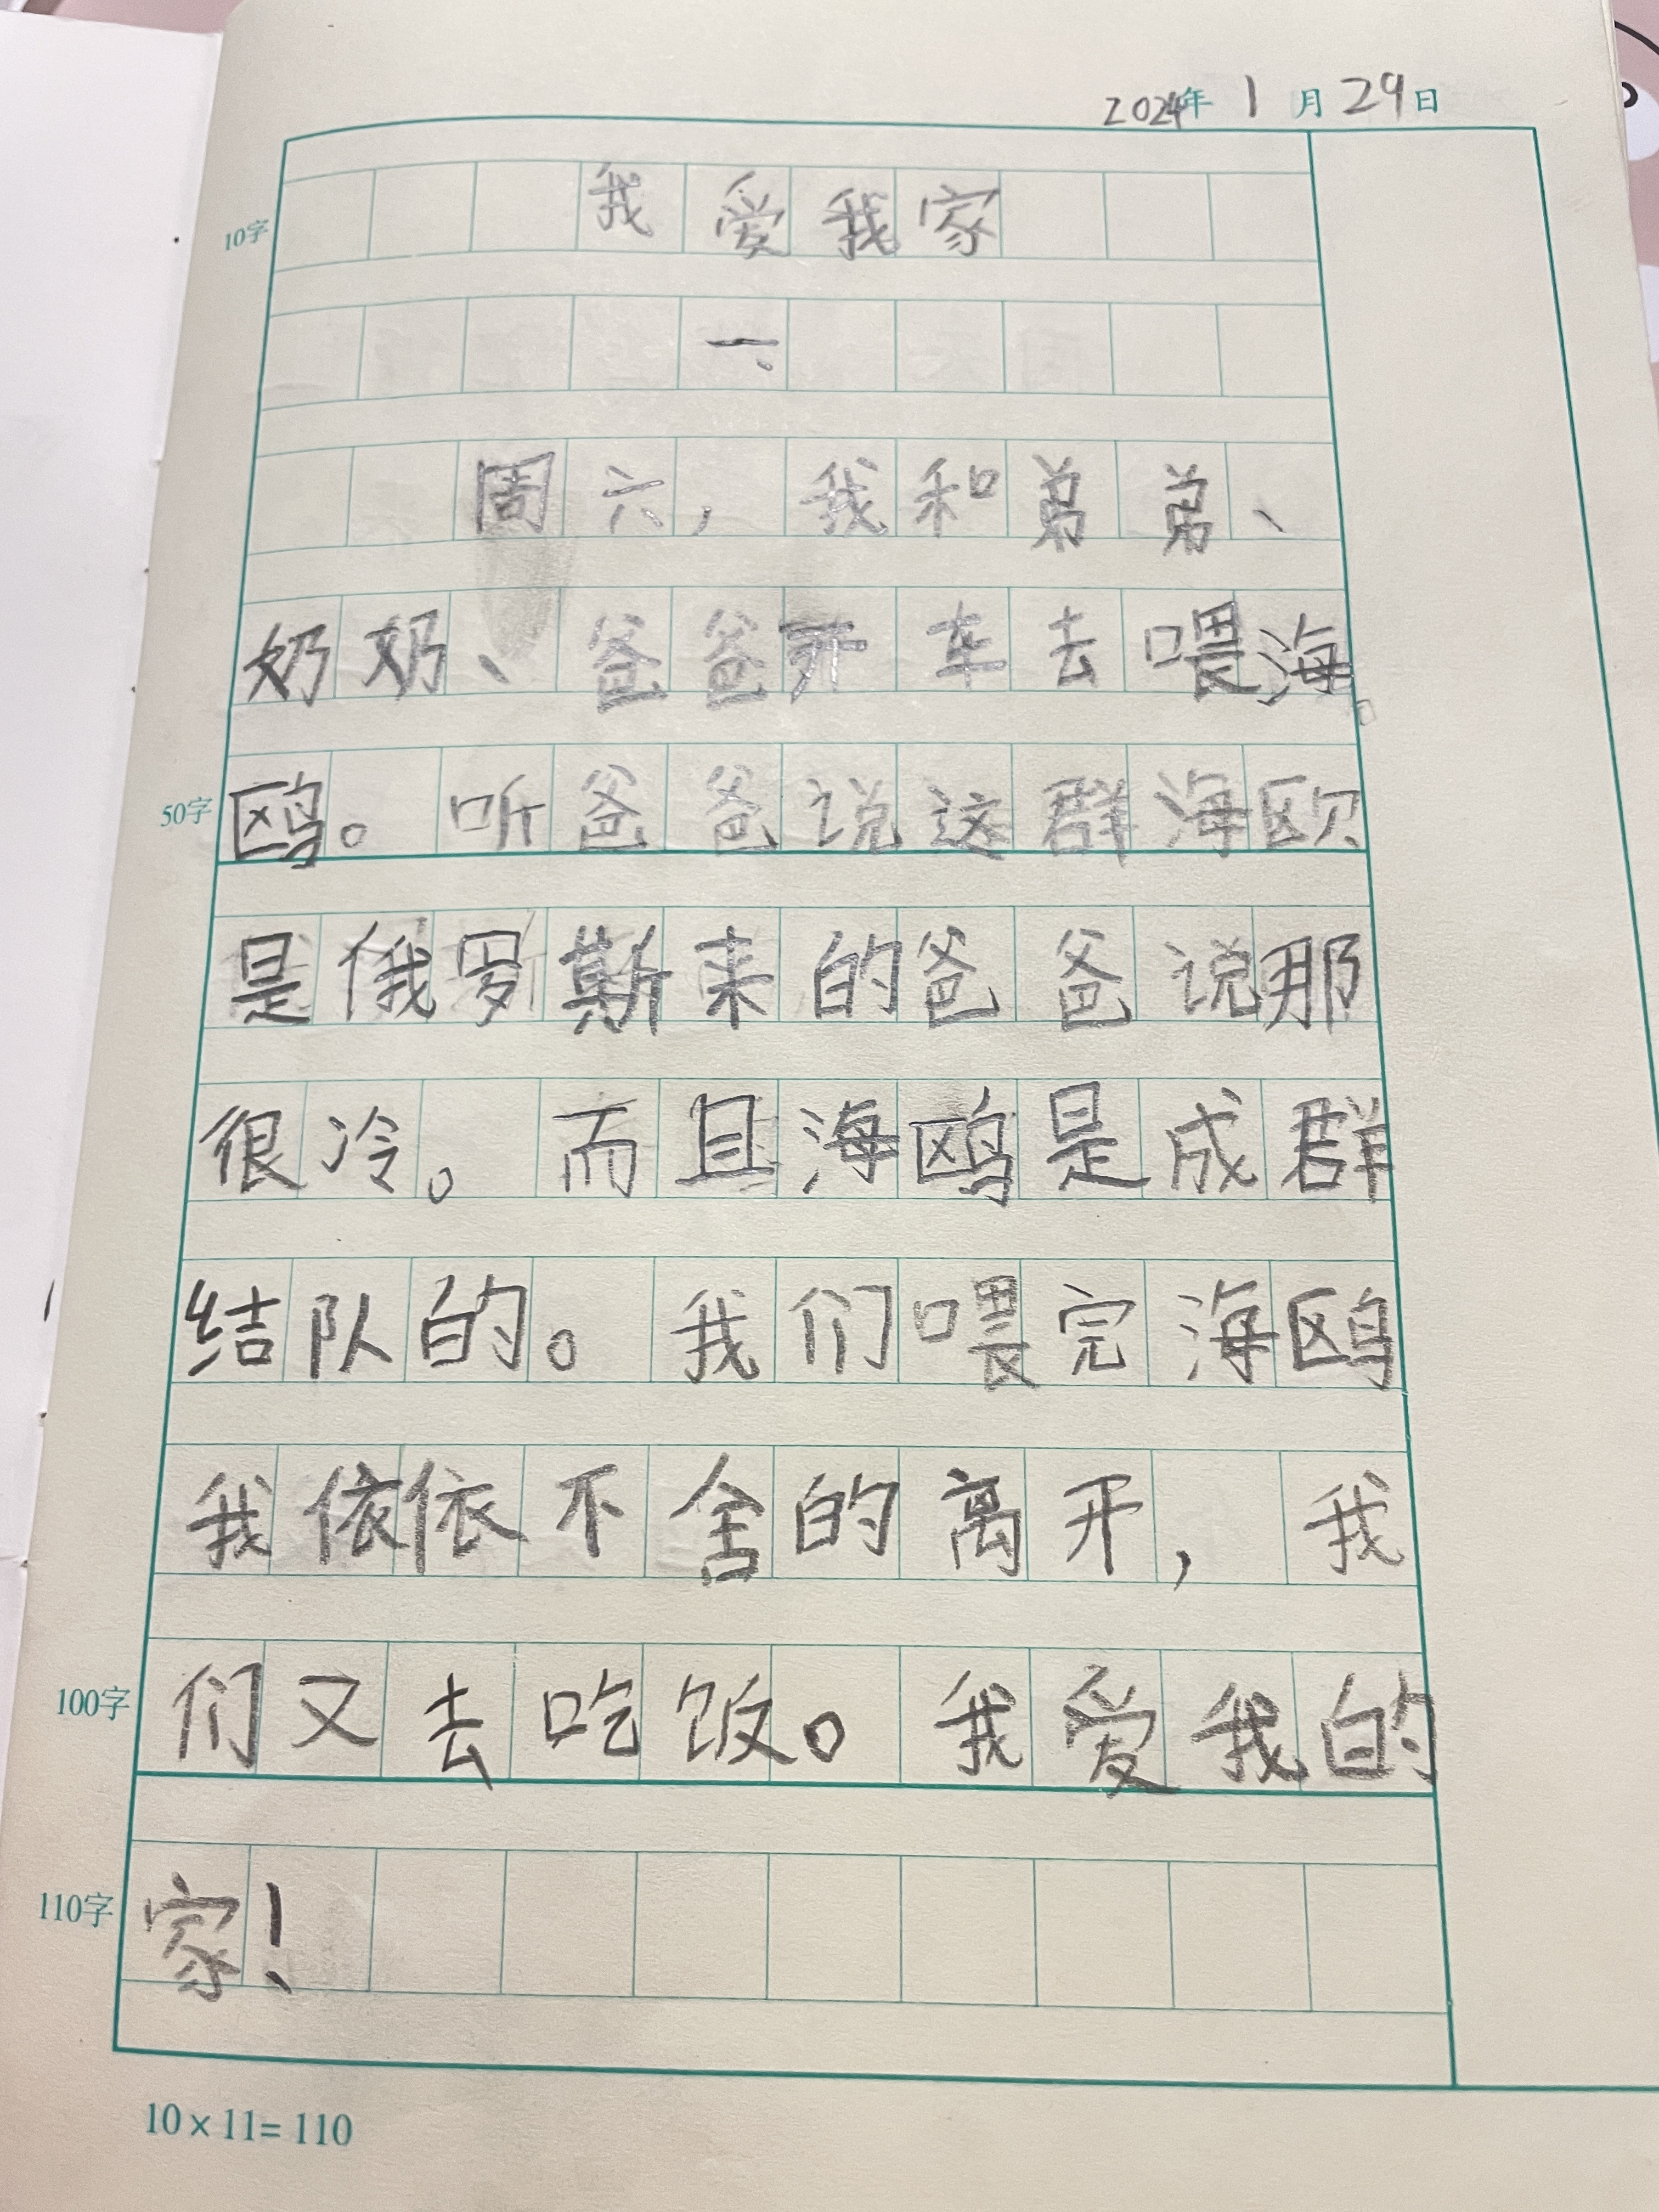 2024年 1 月 29日
10字 我爱我家
一、
周六，我和弟弟、
奶奶、爸爸开车去喂海
50字 鸥。听爸爸说这群海欧
是俄罗斯来的爸爸说那
很冷。而且海鸥是成群
结队的。我们喂完海鸥
我依依不舍的离开，我
100字 们又去吃饭。我爱我的
110字 家！
10×11=110